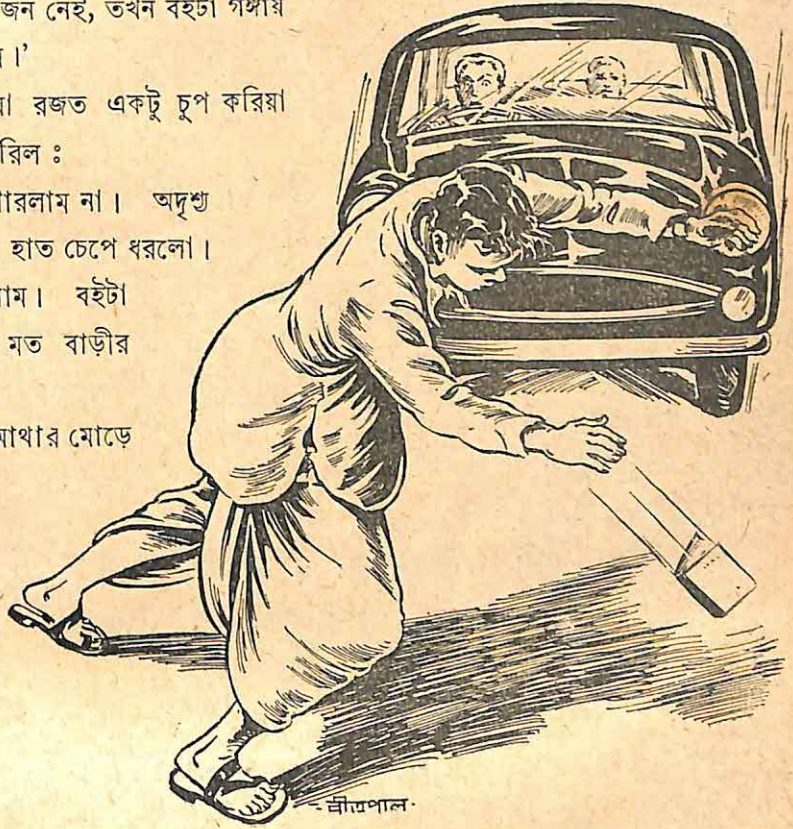 জন নেই, তখন বইটা গঙ্গায়
।’
রজত একটু চুপ করিয়া
রিল :
ারলাম না। অদৃশ্য
হাত চেপে ধরলো।
াম। বইটা
মত বাড়ীর
মাথার মোড়ে